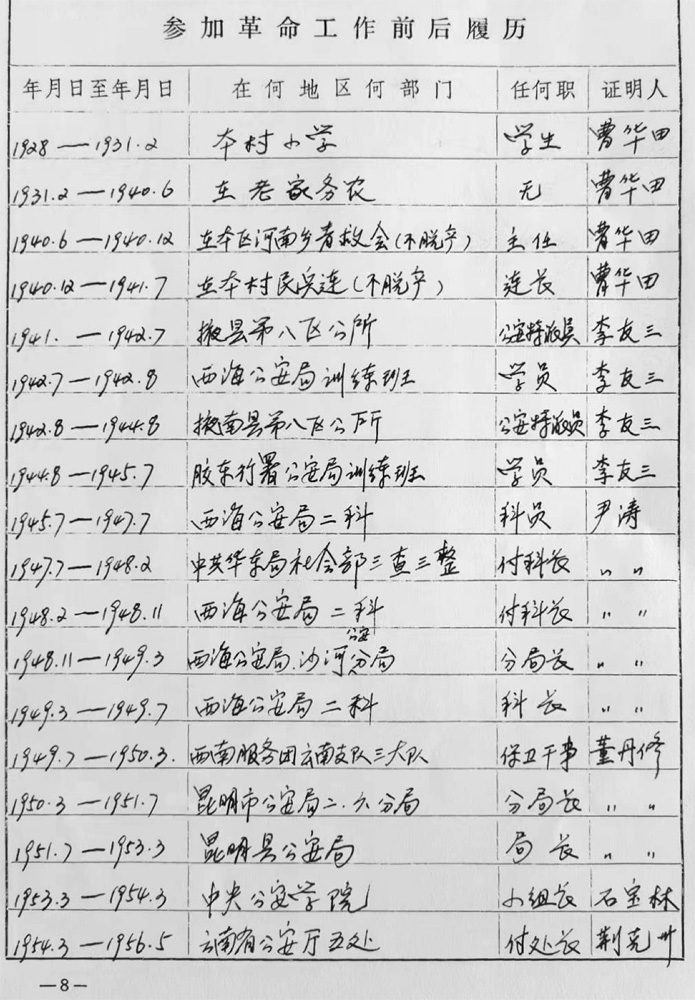 参加革命工作前后履历
年月日至年月日 在何地区何部门 任何职 证明人
1928—1931.2 本村小学 学生 曹华田
1931.2—1940.6 在老家务农 无 曹华田
1940.6—1940.12 在本区河南乡青救会(不脱产) 主任 曹华田
1940.12—1941.7 在本村民兵连(不脱产) 连长 曹华田
1941. —1942.7 掖县第八区公所 公安特派员 李友三
1942.7—1942.8 西海公安局训练班 学员 李友三
1942.8—1944.8 掖南县第八区公所 公安特派员 李友三
1944.8—1945.7 胶东行署公安局训练班 学员 李友三
1945.7—1947.7 西海公安局二科 科员 尹涛
1947.7—1948.2 中共华东局社会部三查三整 付科长 〃 〃
1948.2—1948.11 西海公安局二科 付科长 〃 〃
1948.11—1949.3 西海公安局.沙河公安分局 分局长 〃 〃
1949.3—1949.7 西海公安局二科 科长 〃 〃
1949.7—1950.3. 西南服务团云南支队三大队 保卫干事 董丹修
1950.3—1951.7 昆明市公安局二.六分局 分局长 〃 〃
1951.7—1953.3 昆明县公安局 局长 〃 〃
1953.3—1954.3 中央公安学院 小组长 石宝林
1954.3—1956.5 云南省公安厅五处 付处长 荆克州
—8—